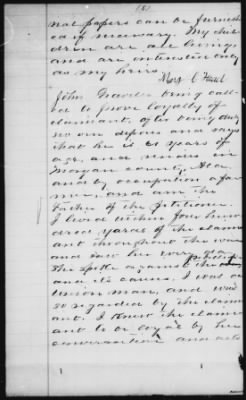 (6)
nal papers can be furnish
ed if necessary. My chil
dren are all living,
and are interested only
as my heirs.
Mary C
John being call
ed to prove loyalty of
claimant, after being duly
sworn deposes and says
that he is 61 years of
age, and resides in
Morgan county, Ala
and by occupation a far
mer, and am the
father of the petitioner.
I lived within four hun
dred yards of the claim
ant throughout the war
and saw her every day
She spoke against the
and its cause. I was a
union man, and was
so regarded by the claim
ant. I knew the claim
ant to be loyal by her
conversation and acts